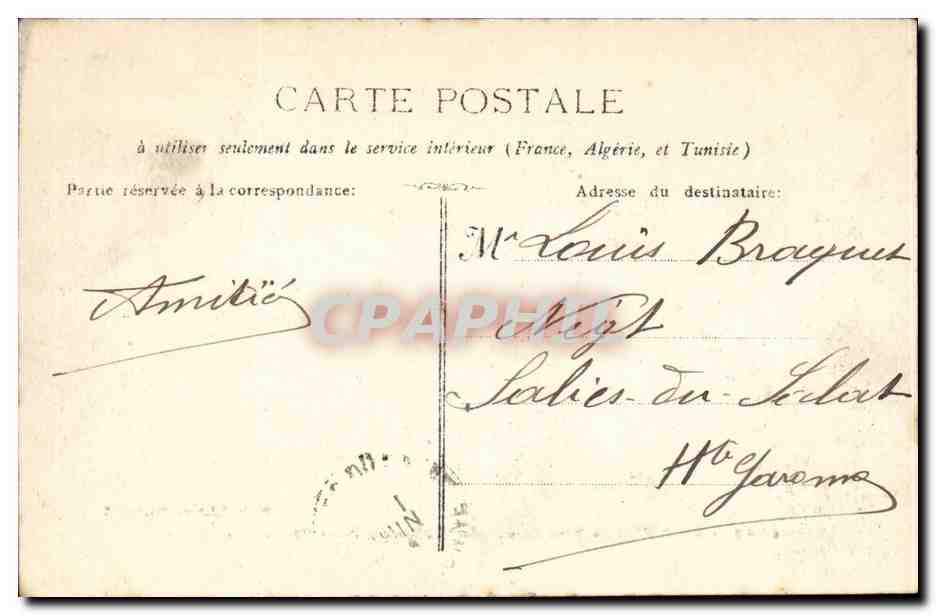 CARTE POSTALE
à utiliser seulement dans le service intérieur (France, Algérie, et Tunisie)
Partie réservée à la correspondance:
Adresse du destinataire:
Amitié
Mr Louis Braquet
Négt
Salies-du-Salat
Hte Garonne
CPAPHIL
JUIN